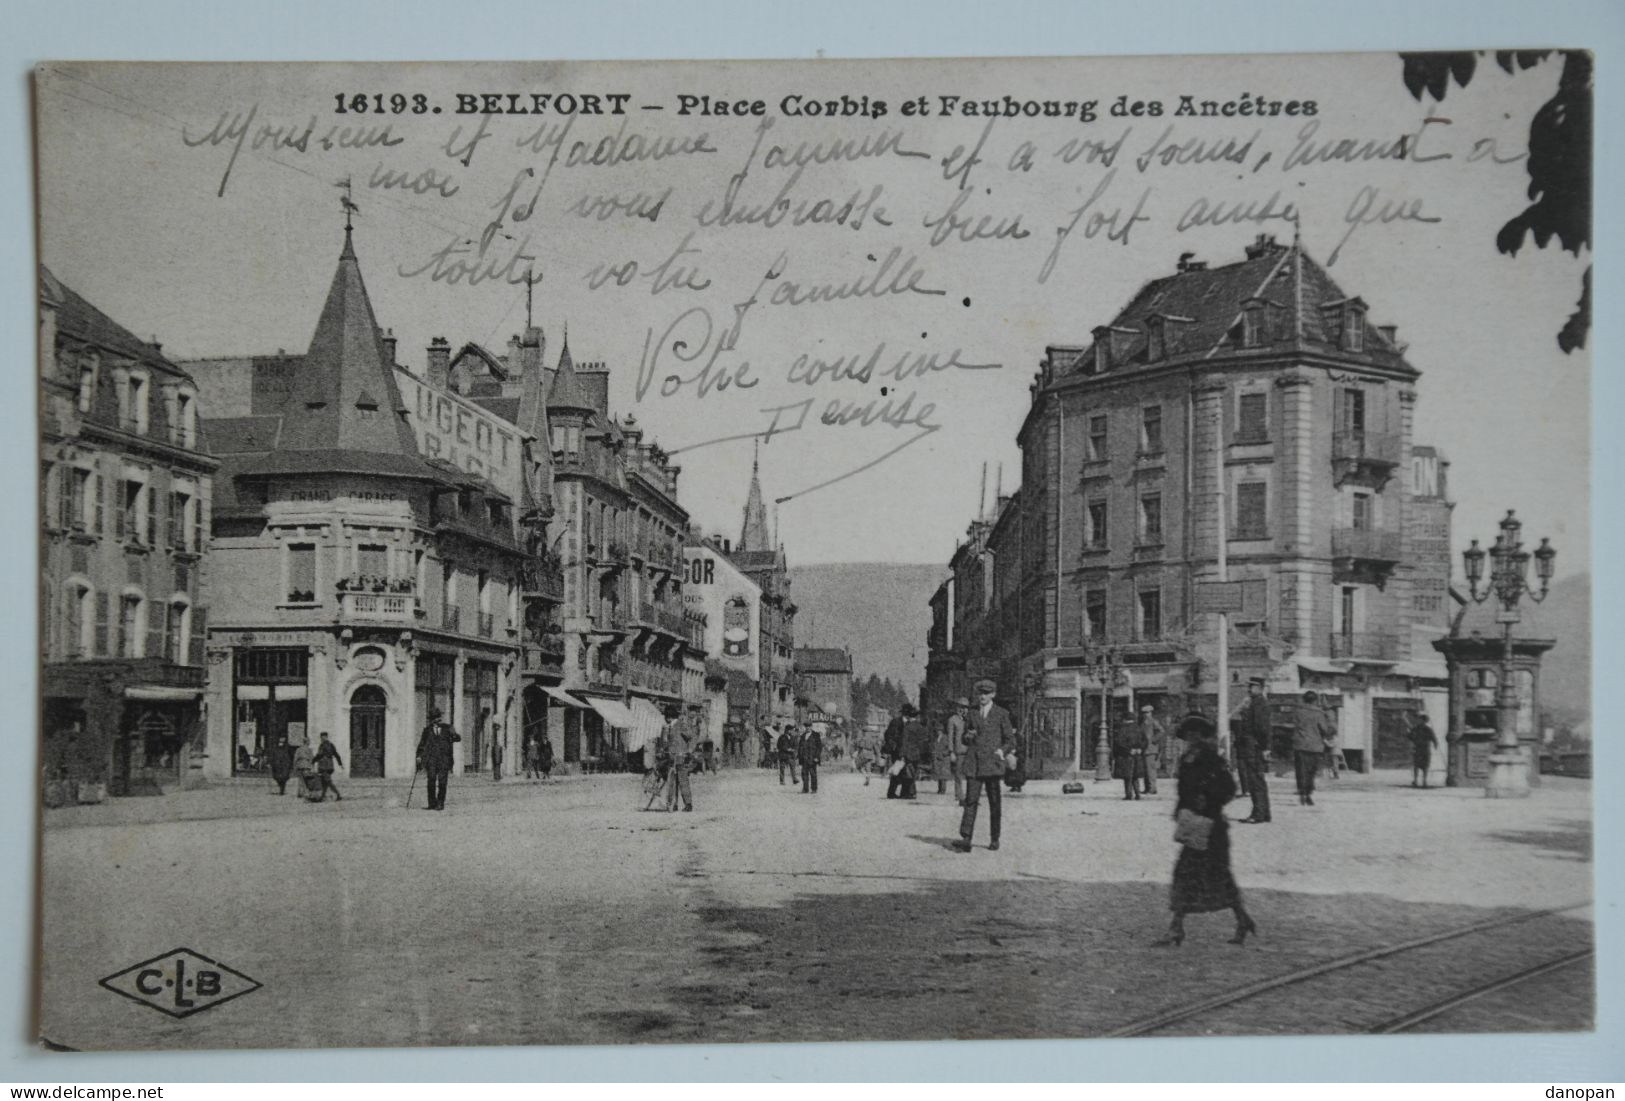 16193. BELFORT – Place Corbis et Faubourg des Ancêtres
Monsieur et Madame et a vos soeurs, Quant à
moi Je vous embrasse bien fort ainsi que
toute votre famille.
Votre cousine
Denise
UGEOT
GRAND GARAGE
GOR
ON
C.L.B
danopan